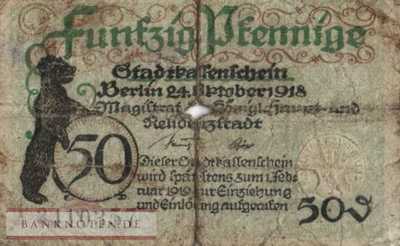 Funfzig Pfennige
Stadtkassenschein
Berlin 24. Oktober 1918
Magistrat Königl. Haupt- und
Residenzstadt
50
Dieser Stadtkassenschein
wird spätestens zum 1. Feb-
ruar 1919 zur Einziehung
und Einlösung aufgerufen
BANKNOTEN.DE
50